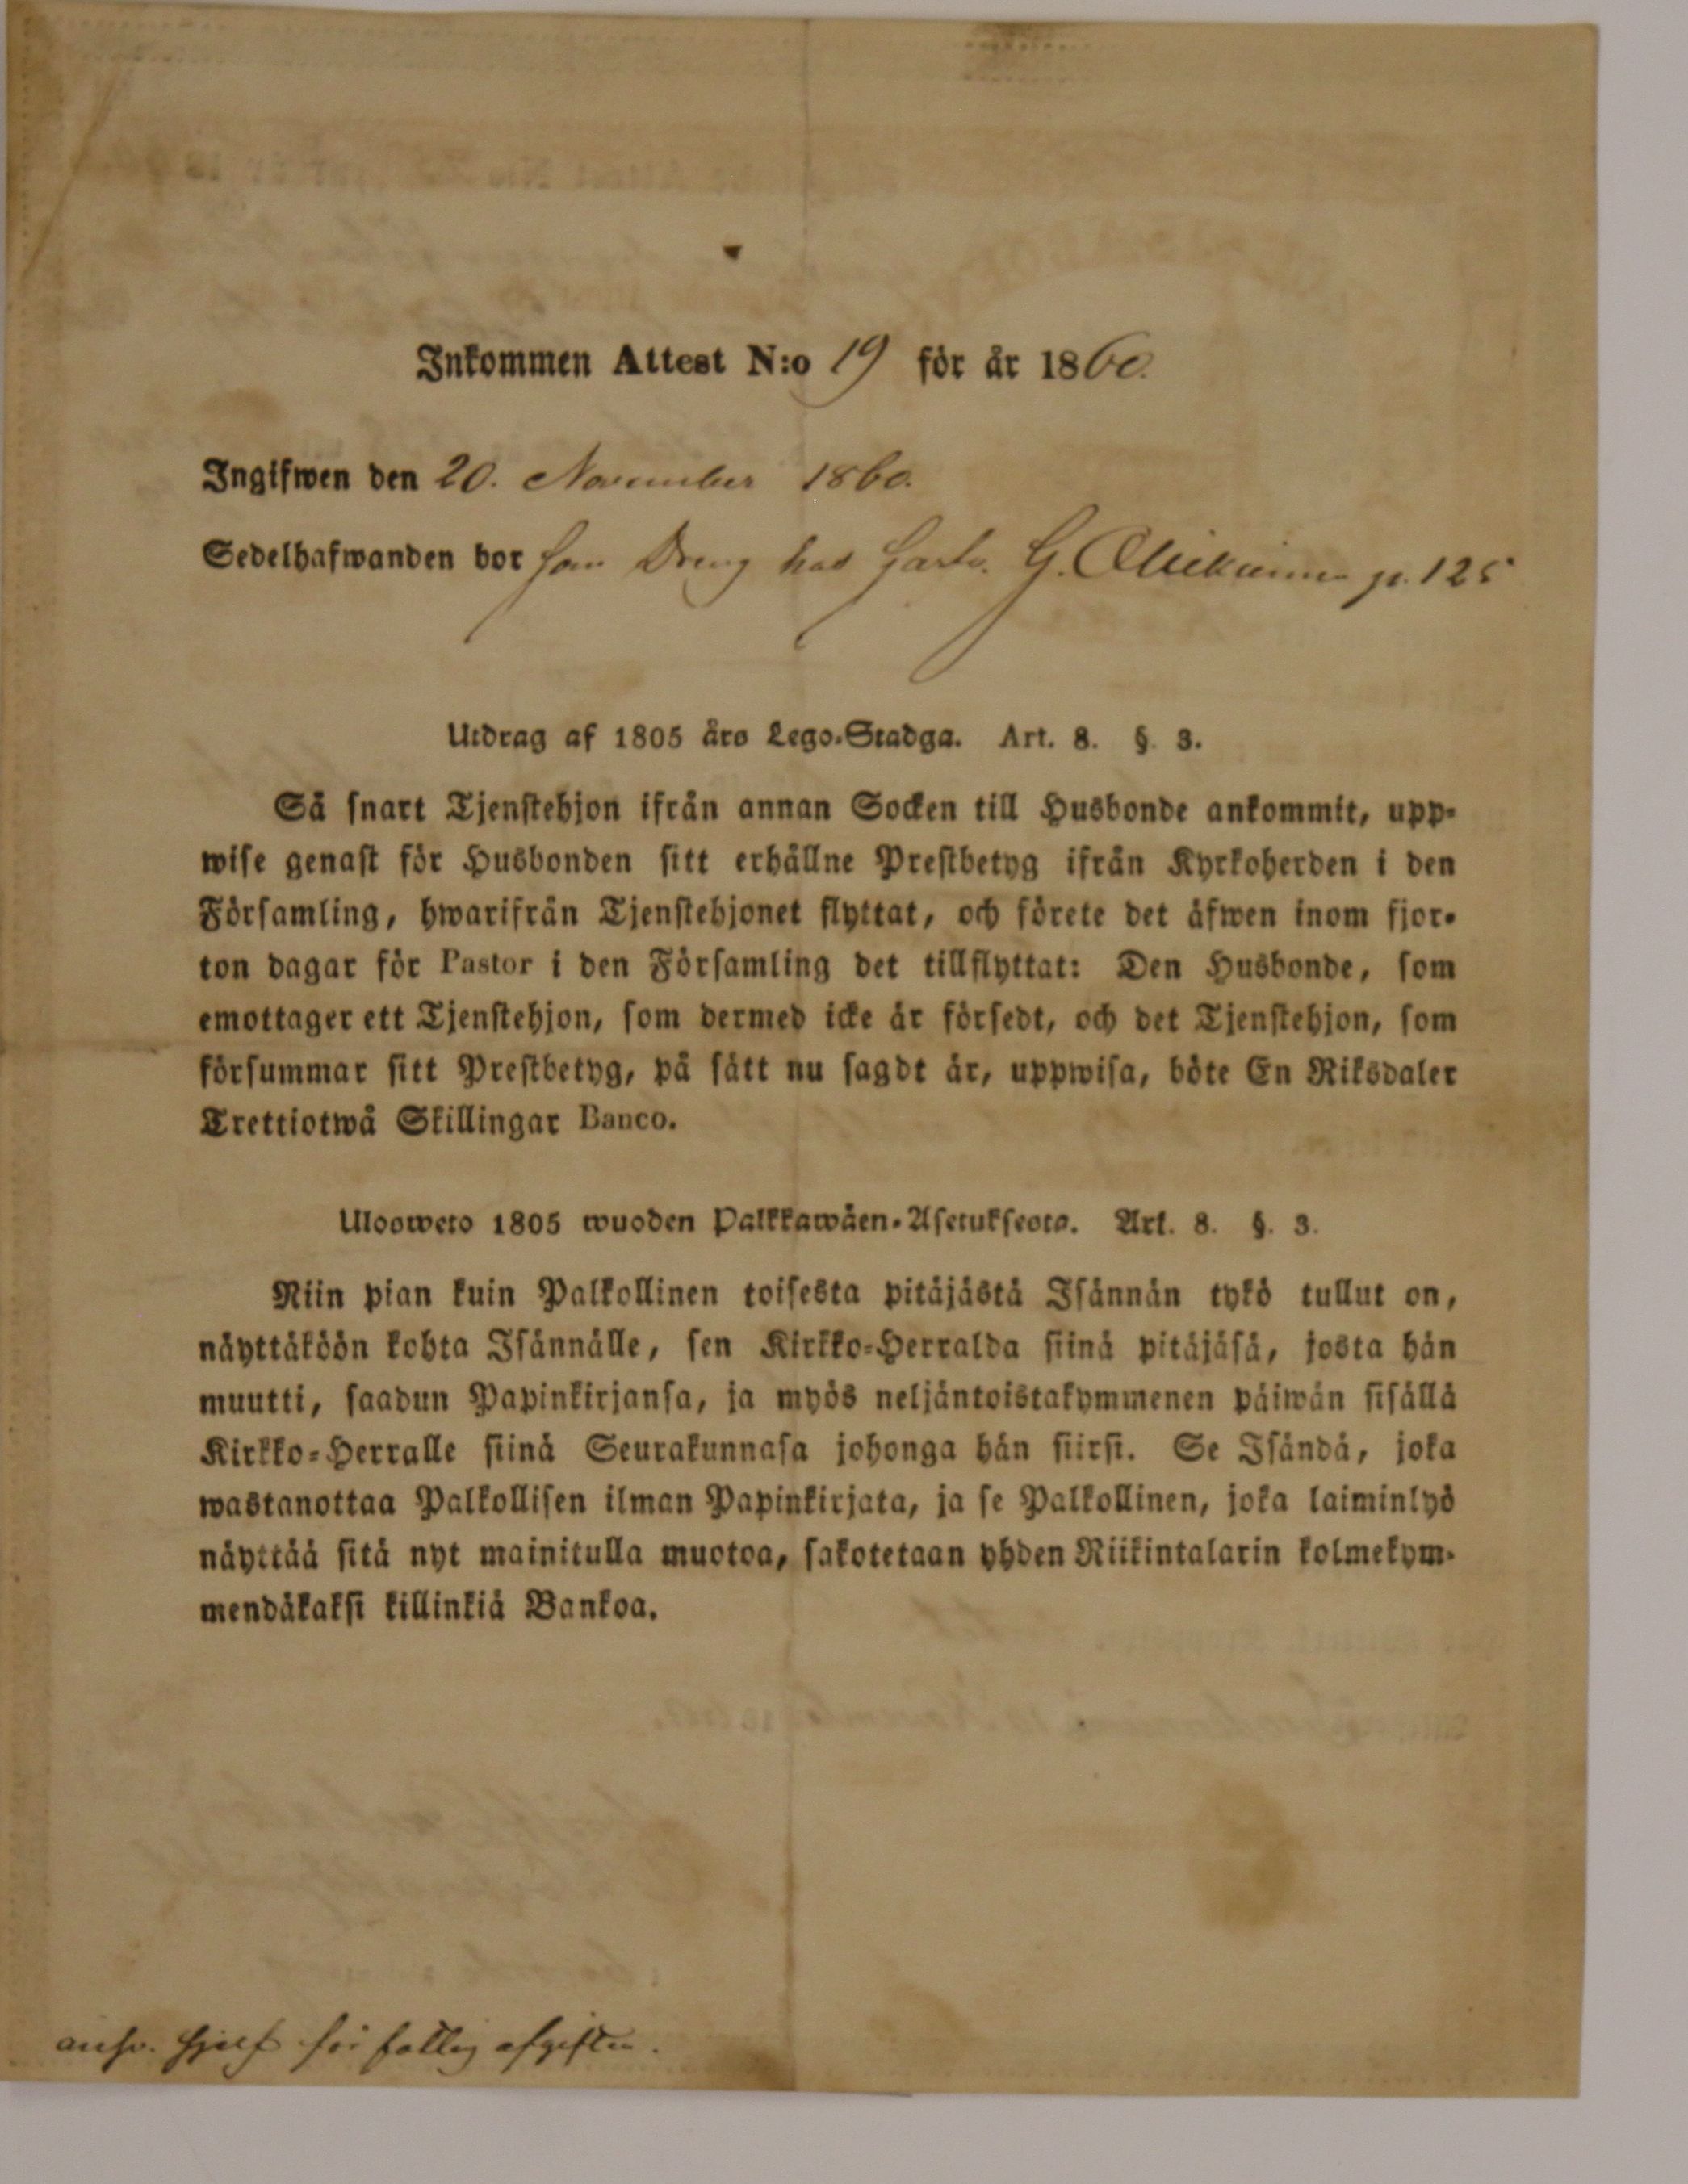 Inkommen Attest N:o 19 för år 1860.
Ingifwen den 20. November 1860.
Sedelhafwanden bor som Dreng hos G. p. 125
Utdrag af 1805 års Lego-Stadga. Art. 8. §. 3.
Så snart Tjenstehjon ifrån annan Socken till Husbonde ankommit, upp-
wise genast för Husbonden sitt erhållne Prestbetyg ifrån Kyrkoherden i den
Församling, hwarifrån Tjenstehjonet flyttat, och förete det äfwen inom fjor-
ton dagar för Pastor i den Församling det tillflyttat: Den Husbonde, som
emottager ett Tjenstehjon, som dermed icke är försedt, och det Tjenstehjon, som
försummar sitt Prestbetyg, på sätt nu sagdt är, uppwisa, böte En Riksdaler
Trettiotwå Skillingar Banco.
Uloswето 1805 wuoden Palkkawäen-Asetuksesta. Art. 8. §. 3.
Niin pian kuin Palkollinen toisesta pitäjästä Isännän tykö tullut on,
näyttäköön kohta Isännälle, sen Kirkko-Herralda siinä pitäjäsä, josta hän
muutti, saadun Papinkirjansa, ja myös neljäntoistakymmenen päiwän sisällä
Kirkko-Herralle siinä Seurakunnasa johonga hän siirsi. Se Isändä, joka
wastanottaa Palkollisen ilman Papinkirjata, ja se Palkollinen, joka laiminlyö
näyttää sitä nyt mainitulla muotoa, sakotetaan yhden Riikintalarin kolmekym-
mendäkaksi killinkiä Bankoa.
answ. sjelf för fattig afgiften.